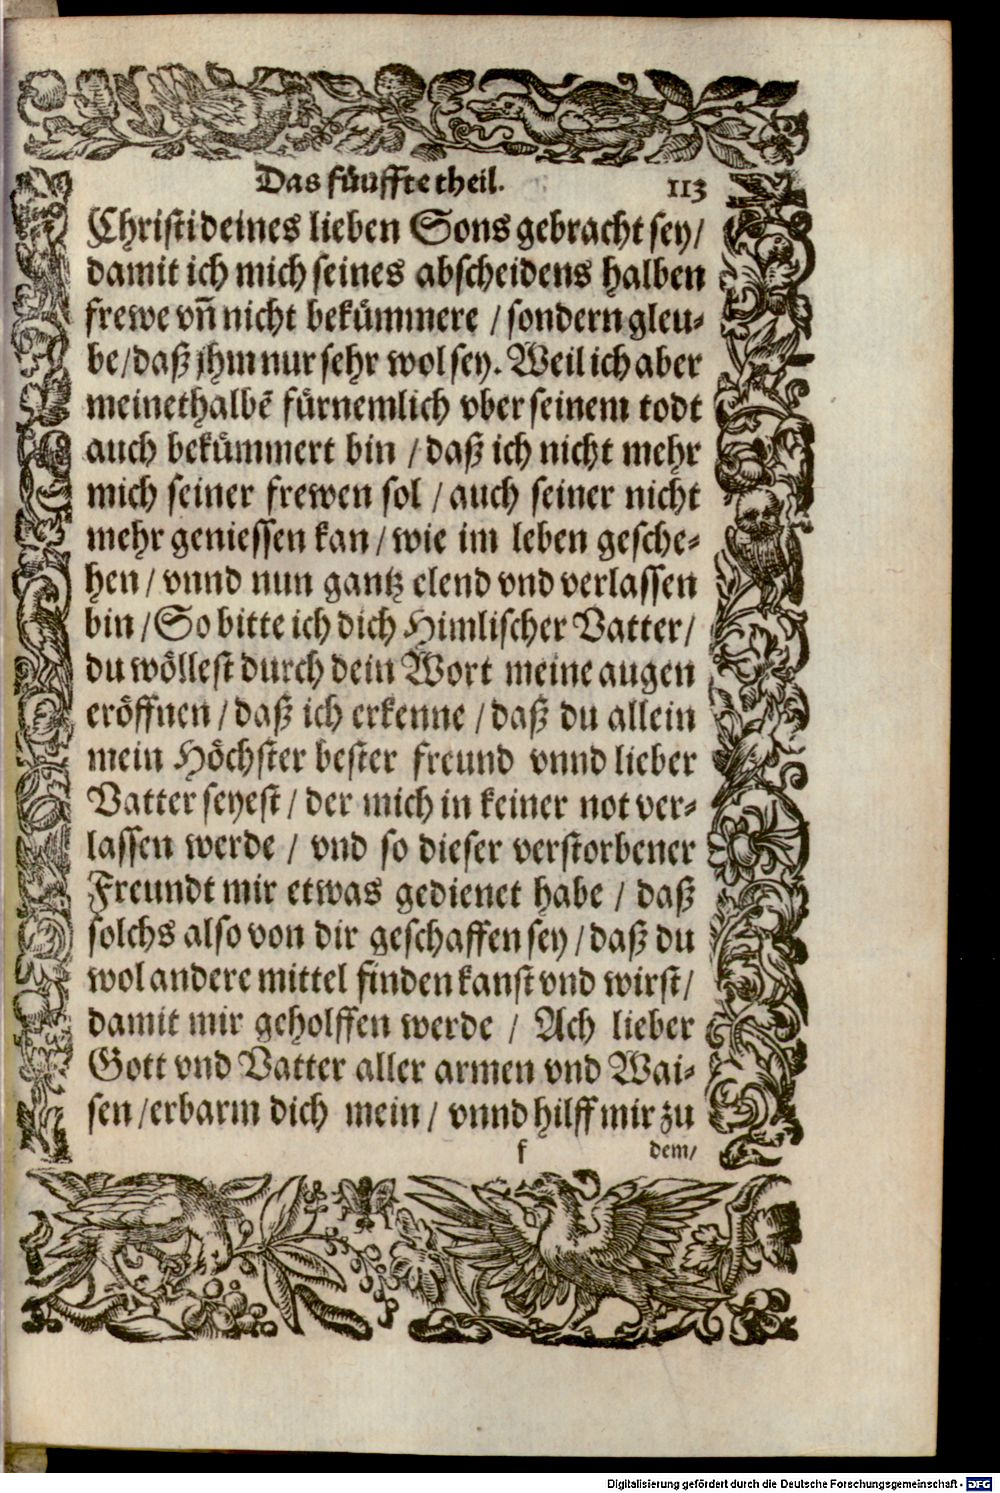 Das fünffte theil. 113
Christi deines lieben Sons gebracht sey/
damit ich mich seines abscheidens halben
frewe vñ nicht bekümmere / sondern gleu-
be/daß jhm nur sehr wol sey. Weil ich aber
meinethalbẽ fürnemlich vber seinem todt
auch bekümmert bin / daß ich nicht mehr
mich seiner frewen sol / auch seiner nicht
mehr geniessen kan / wie im leben gesche-
hen / vnnd nun gantz elend vnd verlassen
bin / So bitte ich dich Himlischer Vatter/
du wöllest durch dein Wort meine augen
eröffnen / daß ich erkenne / daß du allein
mein Höchster bester freund vnnd lieber
Vatter seyest / der mich in keiner not ver-
lassen werde / vnd so dieser verstorbener
Freundt mir etwas gedienet habe / daß
solchs also von dir geschaffen sey / daß du
wol andere mittel finden kanst vnd wirst/
damit mir geholffen werde / Ach lieber
Gott vnd Vatter aller armen vnd Wai-
sen /erbarm dich mein / vnnd hilff mir zu
f dem/
Digitalisierung gefördert durch die Deutsche Forschungsgemeinschaft - DFG